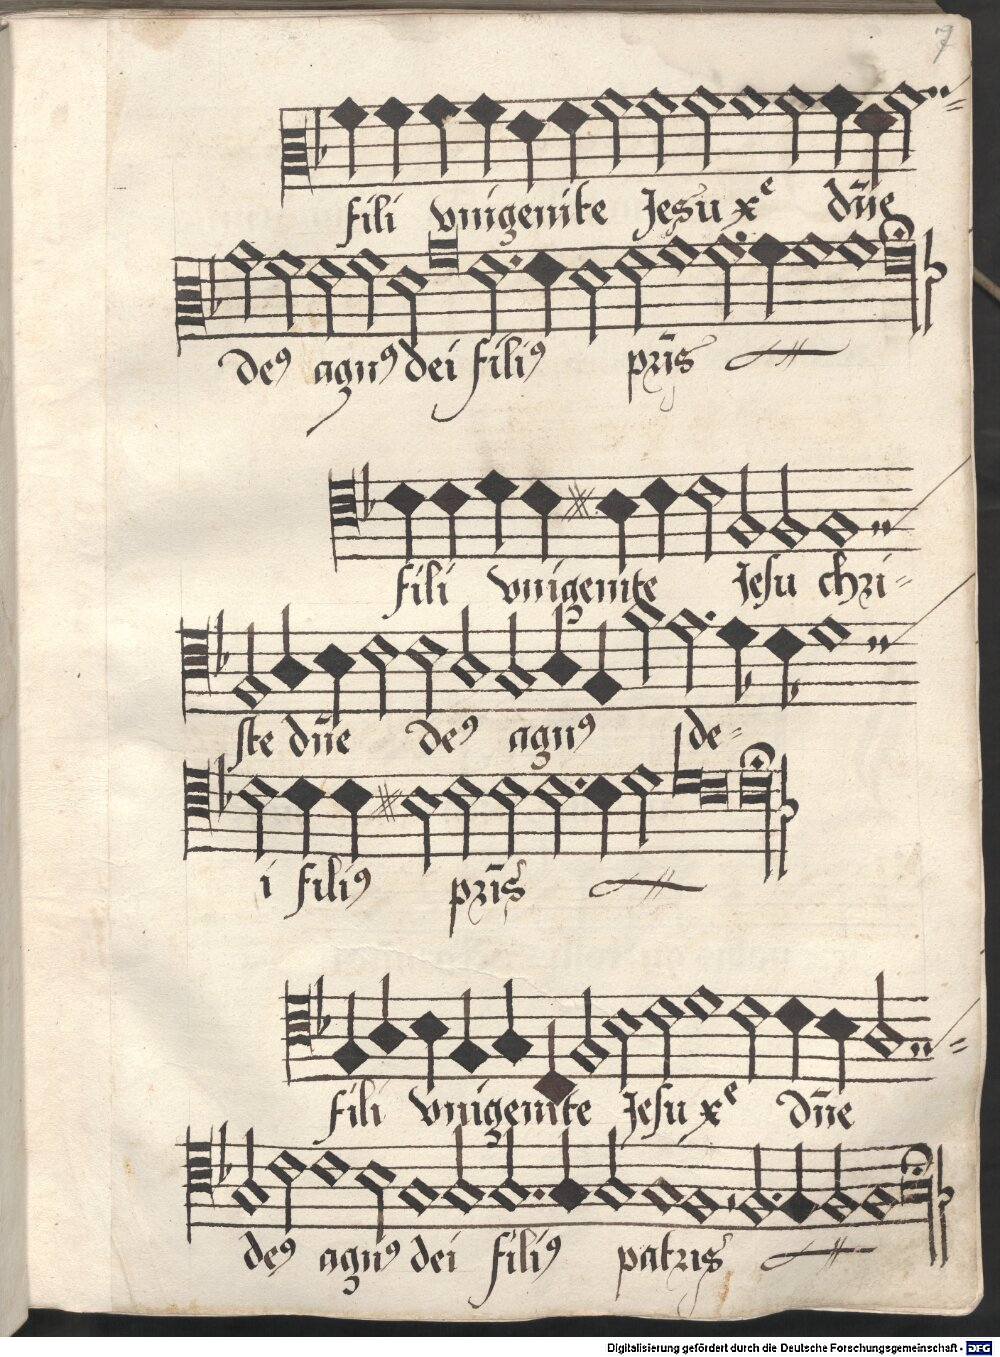 7
fili vnigenite Jesu xᵉ dn̄e
deꝰ agnꝰ dei filiꝰ pr̄is
fili vnigenite Jesu chri=
ste dn̄e deꝰ agnꝰ de=
i filiꝰ pr̄is
fili vnigenite Jesu xᵉ dn̄e
deꝰ agnꝰ dei filiꝰ patris
Digitalisierung gefördert durch die Deutsche Forschungsgemeinschaft - DFG